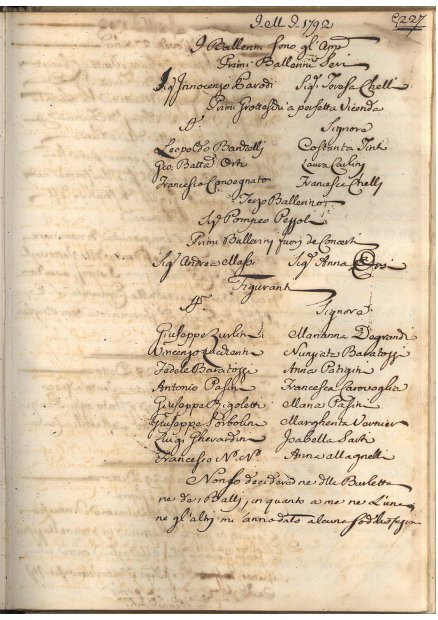 1792
C227
I Ballerini sono gl'
Primi Ballerini Seri
Sigr Innocenzo Parodi Siga Teresa Chelli
Primi Grotteschi a perfetta Vicenda
Signore
Leopoldo Banchelli Costanza Tinti
Gio. Batta Orti Laura Carlini
Francesco Francesca Chelli
Terzo Ballerino
Sigr Pompeo Pezzoli
Primi Ballerini fuori de Concerti
Sigr Andrea Massi Siga Anna
Figuranti
Signore
Giuseppe Zurlini Marianna Degrandi
Vincenzo Nunziata Baratozzi
Fedele Baratozzi Anna
Antonio Pasini Francesca
Giuseppe Rigoletti Maria Pasini
Giuseppe Sorbolini Margherita Varnier
Luigi Gherardini Isabella
Francesco N. N. Anna Magnelli
Non so decidere ne delle Burlette
ne da Balli, in quanto a me ne l'une
ne gl'altri mi anno dato alcuna